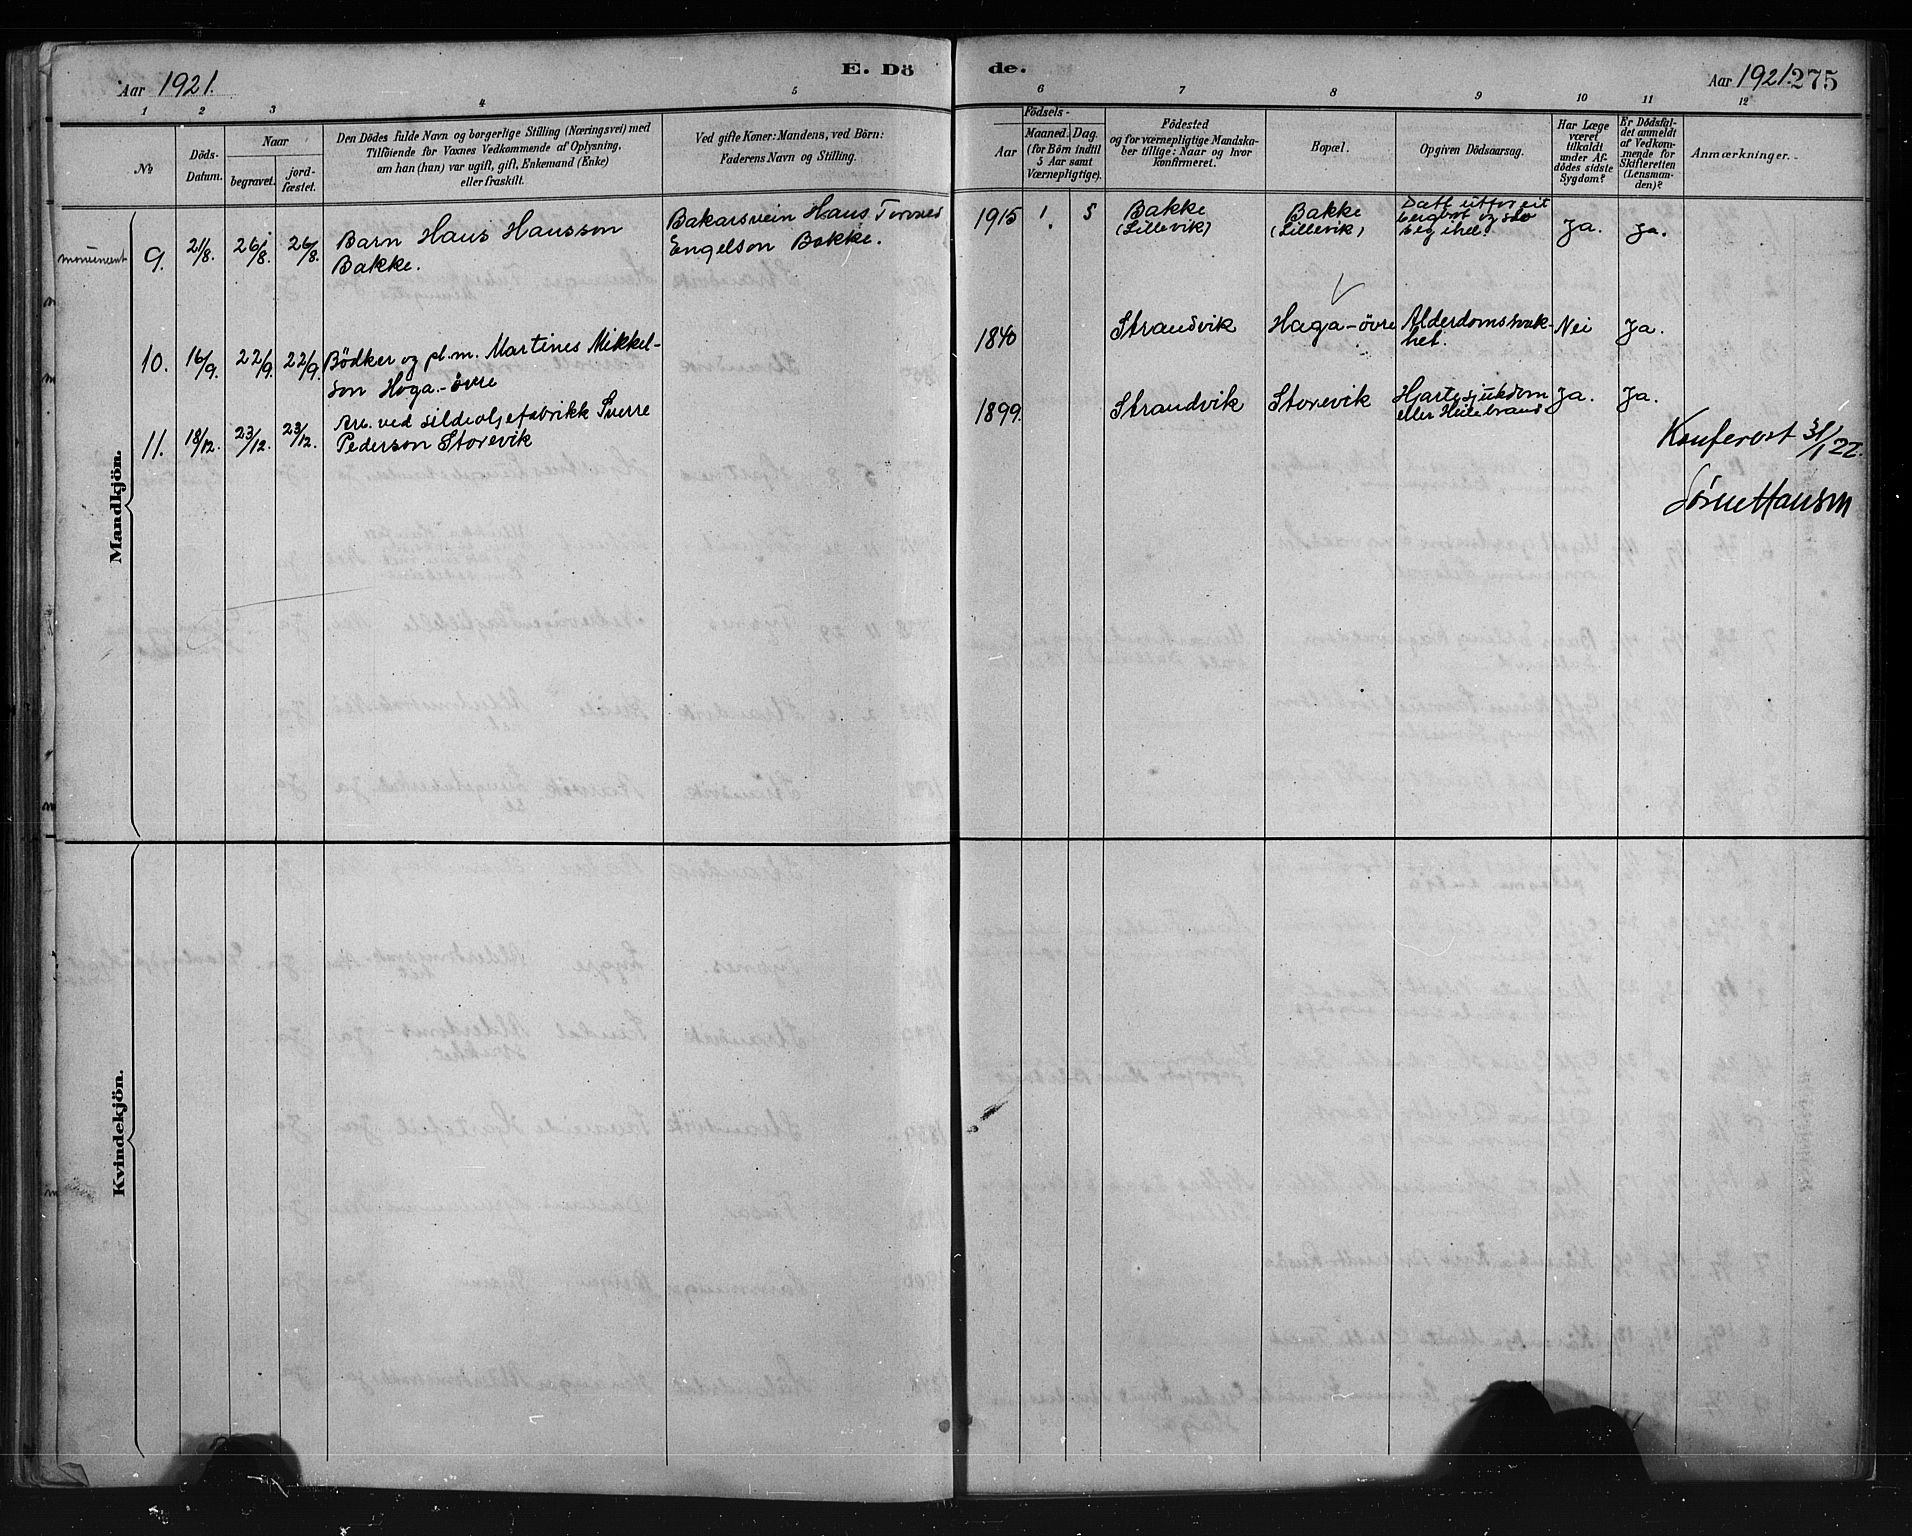 Aar 1921.
E. Dö
de.
Aar 1921. 275
1 2 3 4 5 6 7 8 9 10 11 12
№
Döds-
Datum.
Naar
begravet.
jord-
fæstet.
Den Dödes fulde Navn og borgerlige Stilling (Næringsvei) med
Tilföiende for Voxnes Vedkommende af Oplysning,
om han (hun) var ugift, gift, Enkemand (Enke)
eller fraskilt.
Ved gifte Koner: Mandens, ved Börn:
Faderens Navn og Stilling.
Födsels-
Aar
Maaned.
Dag.
(for Börn indtil
5 Aar samt
Værnepligtige).
Födested
og for værnepligtige Mandska-
ber tillige: Naar og hvor
konfirmeret.
Bopæl.
Opgiven Dödsaarsag.
Har Læge
været
tilkaldt
under Af-
dödes sidste
Sygdom?
Er Dödsfal-
det anmeldt
af Vedkom-
mende for
Skifteretten
(Lensman-
den)?
Anmærkninger.
Mandkjön.
monument 9. 21/8. 26/8. 26/8. Barn Hans Hansson
Bakke.
Bakarsvein Hans
Engelson Bakke.
1915 1. 5 Bakke
(Lillevik)
Bakke
(Lillevik)
Datt utfor eit
bergbot og slo
seg ihel.
Ja. Ja.
10. 16/9. 22/9. 22/9. Bödker og pl.m. Martines Mikkel-
son Haga-övre
1840 Strandvik Haga-övre Alderdomssvak-
het.
Nei Ja.
11. 18/12. 23/12. 23/12. Arb. ved sildeoljefabrikk Sverre
Pederson Storevik
1899. Strandvik Storevik Hjartesjukdom
eller
Ja. Ja.
Konferert 31/1 22.
Sörne Hansen
Kvindekjön.